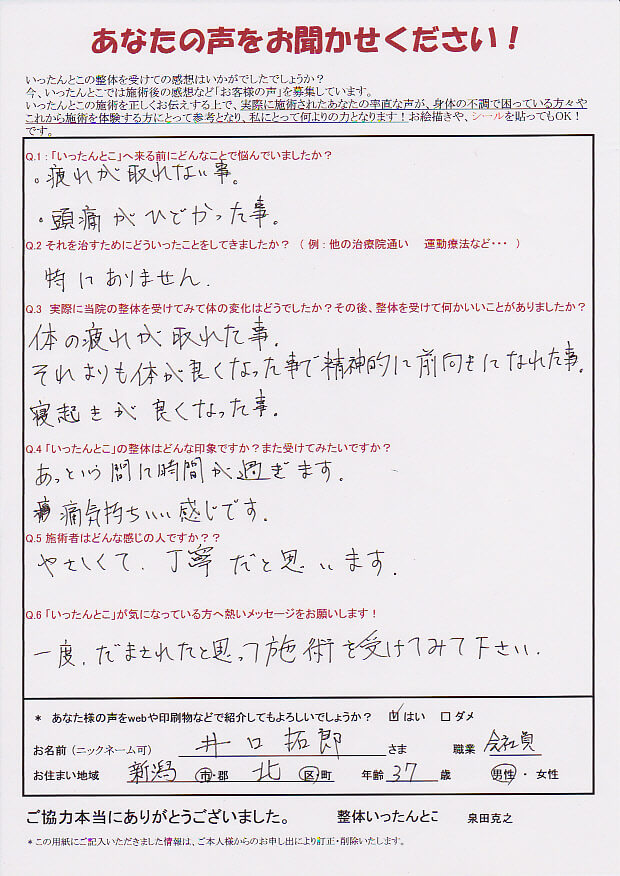 あなたの声をお聞かせください！
いったんとこの整体を受けての感想はいかがでしたでしょうか？
今、いったんとこでは施術後の感想など「お客様の声」を募集しています。
いったんとこの施術を正しくお伝えする上で、実際に施術されたあなたの率直な声が、身体の不調で困っている方々や
これから施術を体験する方にとって参考となり、私にとって何よりの力となります！お絵描きや、シールを貼ってもOK！
です。
Q.1：「いったんとこ」へ来る前にどんなことで悩んでいましたか？
・疲れが取れない事。
・頭痛がひどかった事。
Q.2 それを治すためにどういったことをしてきましたか？（例：他の治療院通い　運動療法など・・・）
特にありません.
Q.3　実際に当院の整体を受けてみて体の変化はどうでしたか？その後、整体を受けて何かいいことがありましたか？
体の疲れが取れた事.
それよりも体が良くなった事で精神的に前向きになれた事.
寝起きが良くなった事.
Q.4「いったんとこ」の整体はどんな印象ですか？また受けてみたいですか？
あっという間に時間が過ぎます.
痛気持ちいい感じです.
Q.5 施術者はどんな感じの人ですか？？
やさしくて.丁寧だと思います.
Q.6「いったんとこ」が気になっている方へ熱いメッセージをお願いします！
一度.だまされたと思って施術を受けてみて下さい.
＊ あなた様の声をwebや印刷物などで紹介してもよろしいでしょうか？ ☑はい □ダメ
お名前（ニックネーム可） 井口拓郎 さま 職業 会社員
お住まい地域 新潟 市・郡 北 区・町 年齢 37 歳 男性・女性
ご協力本当にありがとうございました。 整体いったんとこ 泉田克之
＊この用紙にご記入いただきました情報は、ご本人様からのお申し出により訂正・削除いたします。